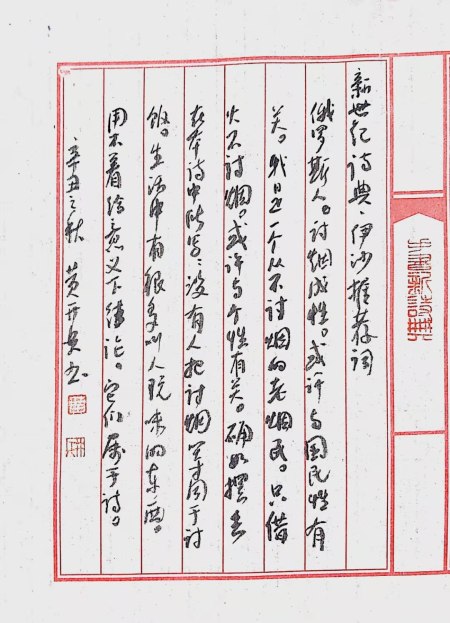 手书新诗典
新世纪诗典·伊沙推荐词
俄罗斯人。讨烟成性。或许与国民性有
关。我是一个从不讨烟的老烟民。只借
火不讨烟。或许与个性有关。确如摆丢
在本诗中所写：没有人把讨烟等同于讨
饭。生活中有很多叫人玩味的东西。
用不着给意义下结论。它们属于诗。
辛丑之秋 黄开兵书